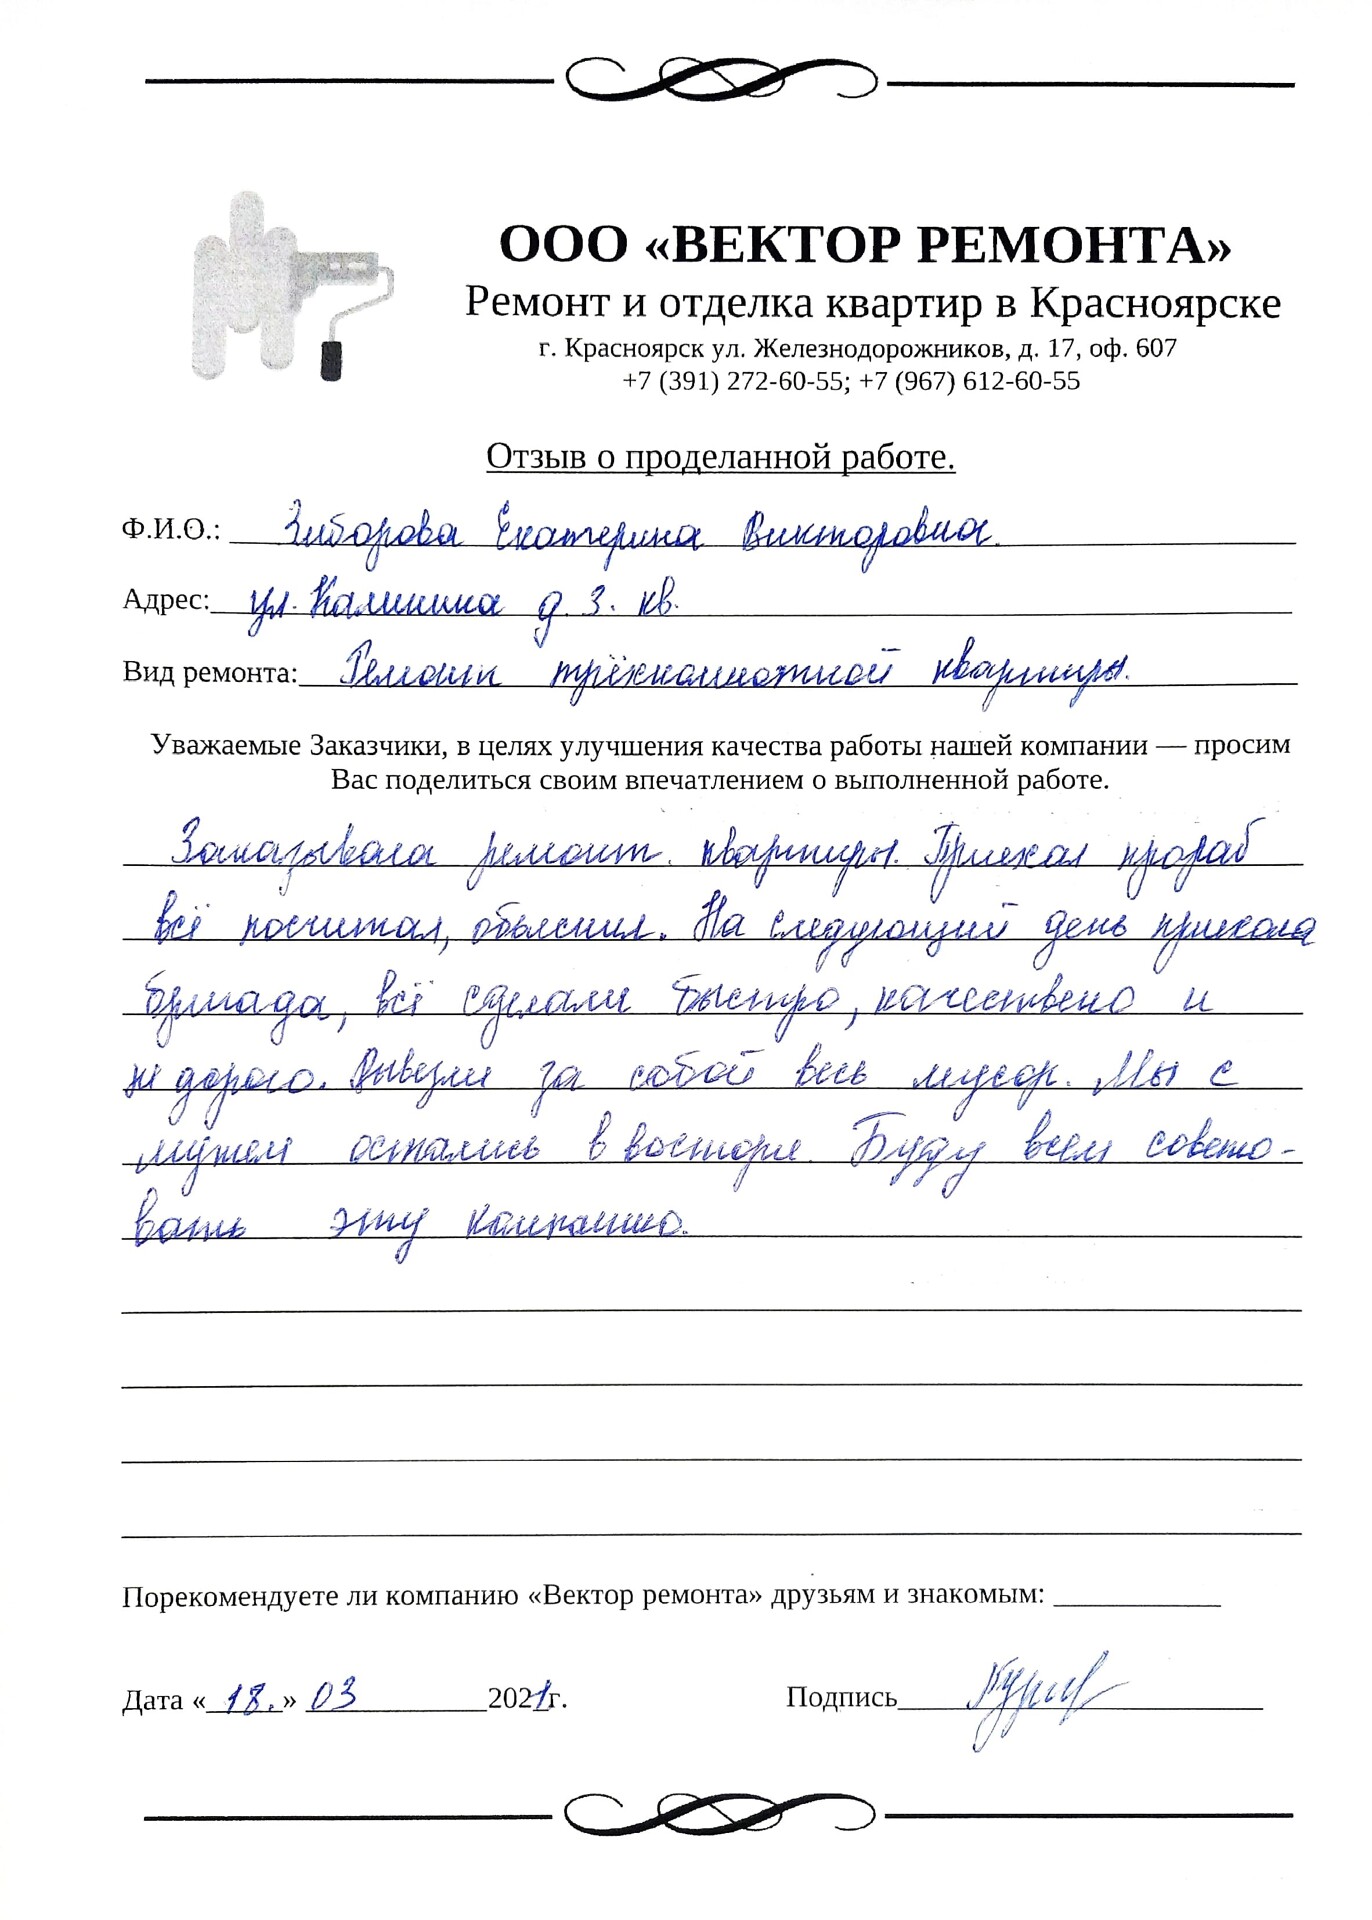 ООО «ВЕКТОР РЕМОНТА»
Ремонт и отделка квартир в Красноярске
г. Красноярск ул. Железнодорожников, д. 17, оф. 607
+7 (391) 272-60-55; +7 (967) 612-60-55
Отзыв о проделанной работе.
Ф.И.О.: Зиборова Екатерина Викторовна.
Адрес: ул. Калинина д. 3. кв.
Вид ремонта: Ремонт трёхкомнатной квартиры.
Уважаемые Заказчики, в целях улучшения качества работы нашей компании — просим
Вас поделиться своим впечатлением о выполненной работе.
Заказывала ремонт квартиры. Приехал прораб
всё посчитал, объяснил. На следующий день приехала
бригада, всё сделали быстро, качествено и
не дорого. Вывезли за собой весь мусор. Мы с
мужем остались в восторге. Буду всем совето-
вать эту компанию.
Порекомендуете ли компанию «Вектор ремонта» друзьям и знакомым:
Дата «18.» 03 2021г. Подпись